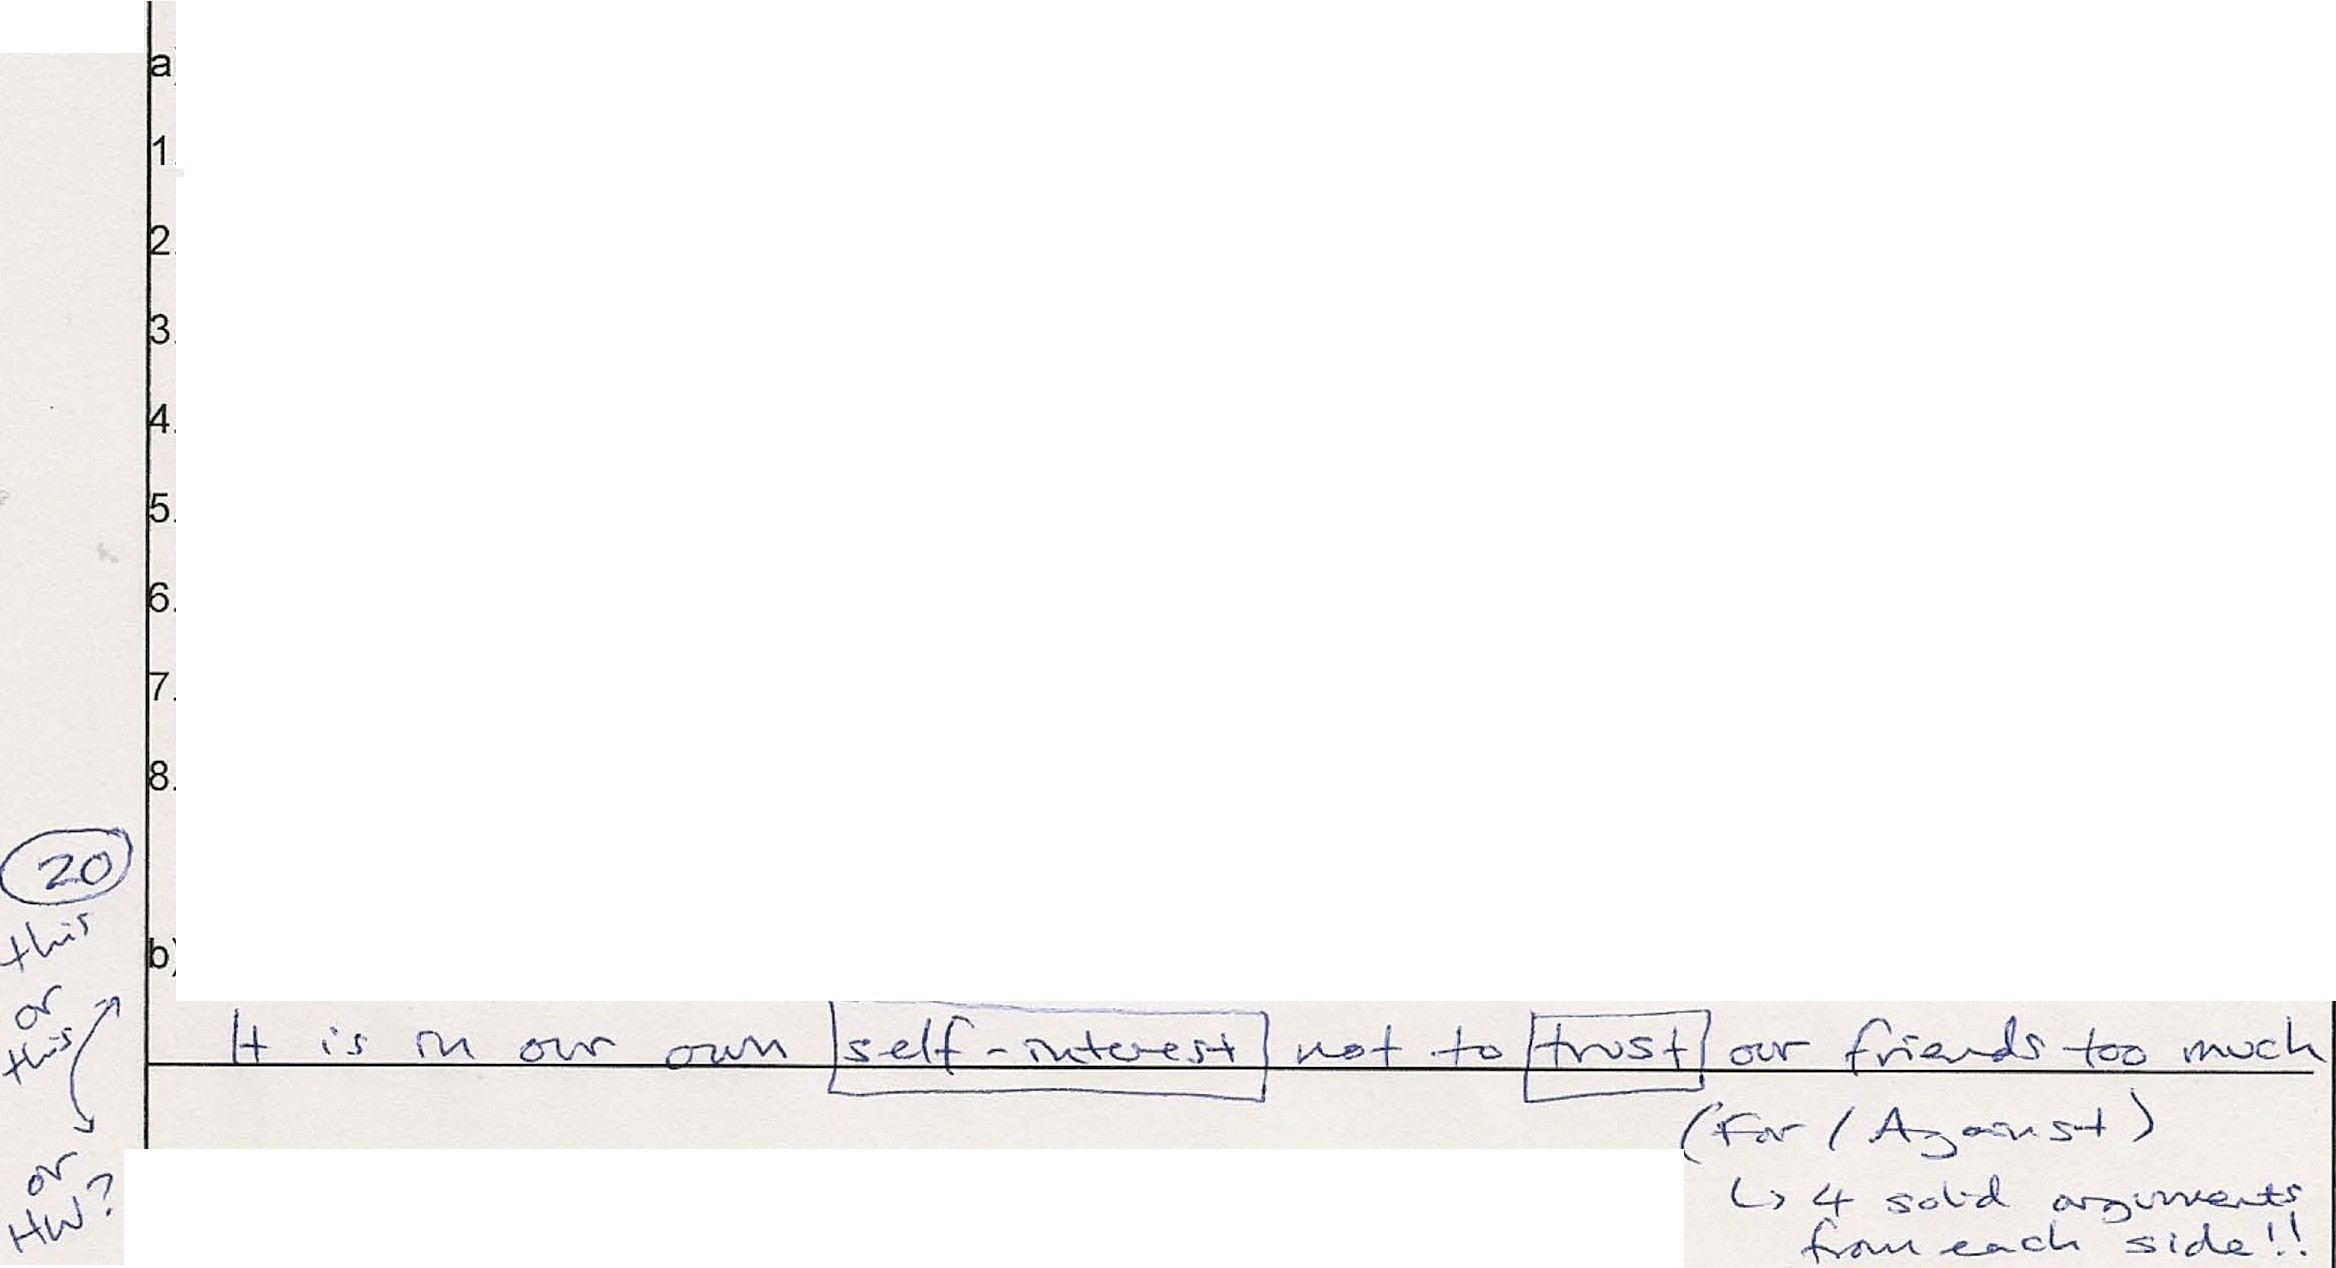 a)
1.
2.
3.
4.
5.
6.
7.
8.
20
this
or
this
or
HW?
b)
It is in our own self-interest not to trust our friends too much
(For / Against)
↳ 4 solid arguments
from each side!!